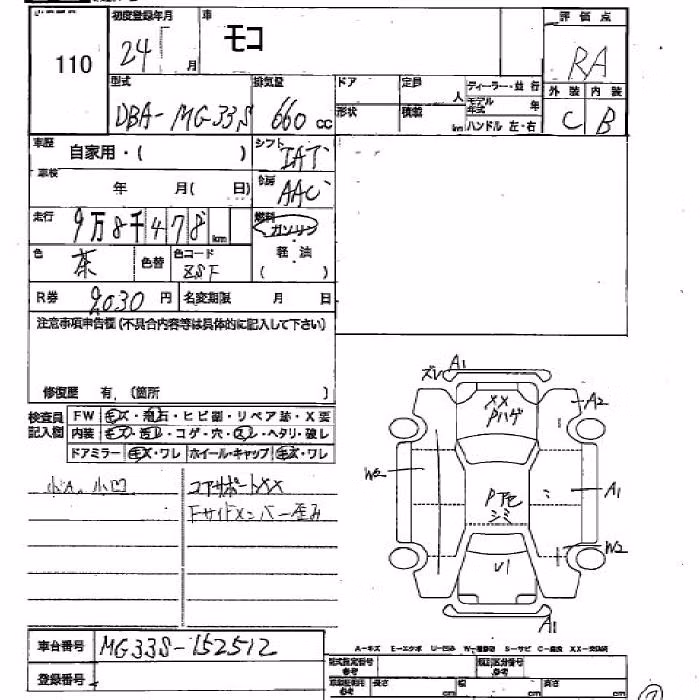 110
初度登録年月
24 月
車
モコ
評価点
RA
型式
DBA-MG33S
排気量
660 cc
ドア
定員
人
ディーラー・並行
モデル年式 年
形状
積載
km
ハンドル 左・右
外装 内装
C B
車歴
自家用・( )
シフト
IAT
車検
年 月( 日)
冷房
AAC
走行
9万8千478 km
燃料
ガソリン
軽油
( )
色
茶
色替
色コード
ZSF
R券 9030 円
名変期限 月 日
注意事項申告欄(不具合内容等は具体的に記入して下さい)
修復歴 有.〔箇所 〕
検査員記入欄
FW キズ・飛石・ヒビ割・リペア跡・X要
内装 キズ・汚レ・コゲ・穴・スレ・ヘタリ・破レ
ドアミラー キズ・ワレ ホイール・キャップ キズ・ワレ
小A、小凹
コアサポートXX
Fサイドメンバー歪み
ズレ A1
XX
Pハゲ
A2
W2
Pアセ
シミ
A1
W2
U1
A1
車台番号 MG33S-152512
登録番号
A-キズ E-エクボ U-凹み W-補修跡 S-サビ C-腐食 XX-交換済
型式指定番号 参考
類別区分番号 参考
参考 長さ cm 幅 cm 高さ cm